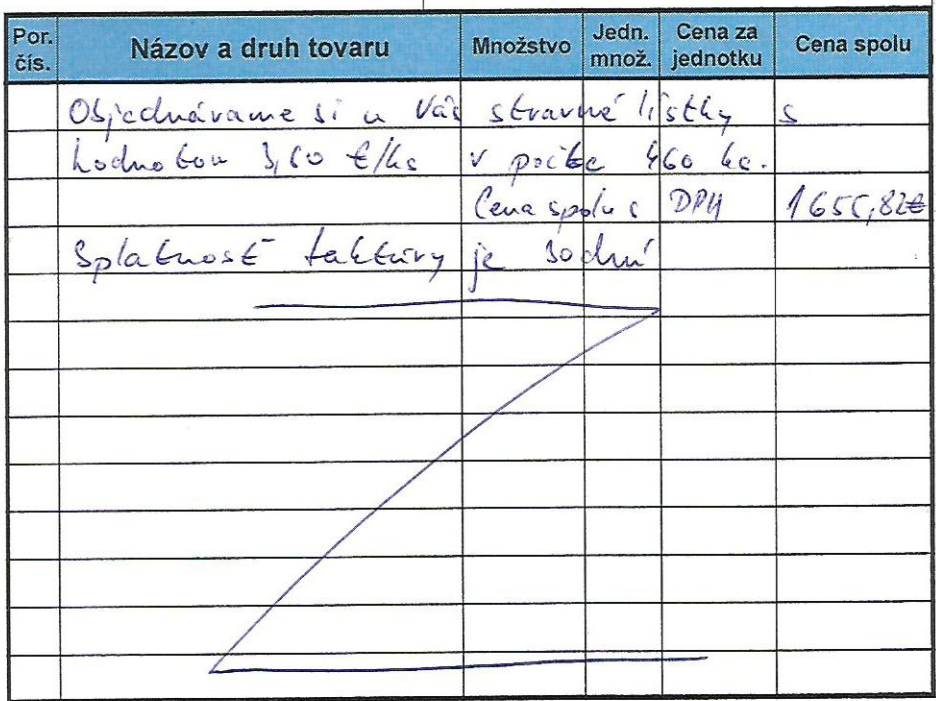 Por. čís. Názov a druh tovaru Množstvo Jedn. množ. Cena za jednotku Cena spolu
Objednávame si u Vás stravné lístky s
hodnotou 3,60 €/ks v počte 460 ks.
Cena spolu s DPH 1656,82€
Splatnosť faktúry je 30 dní